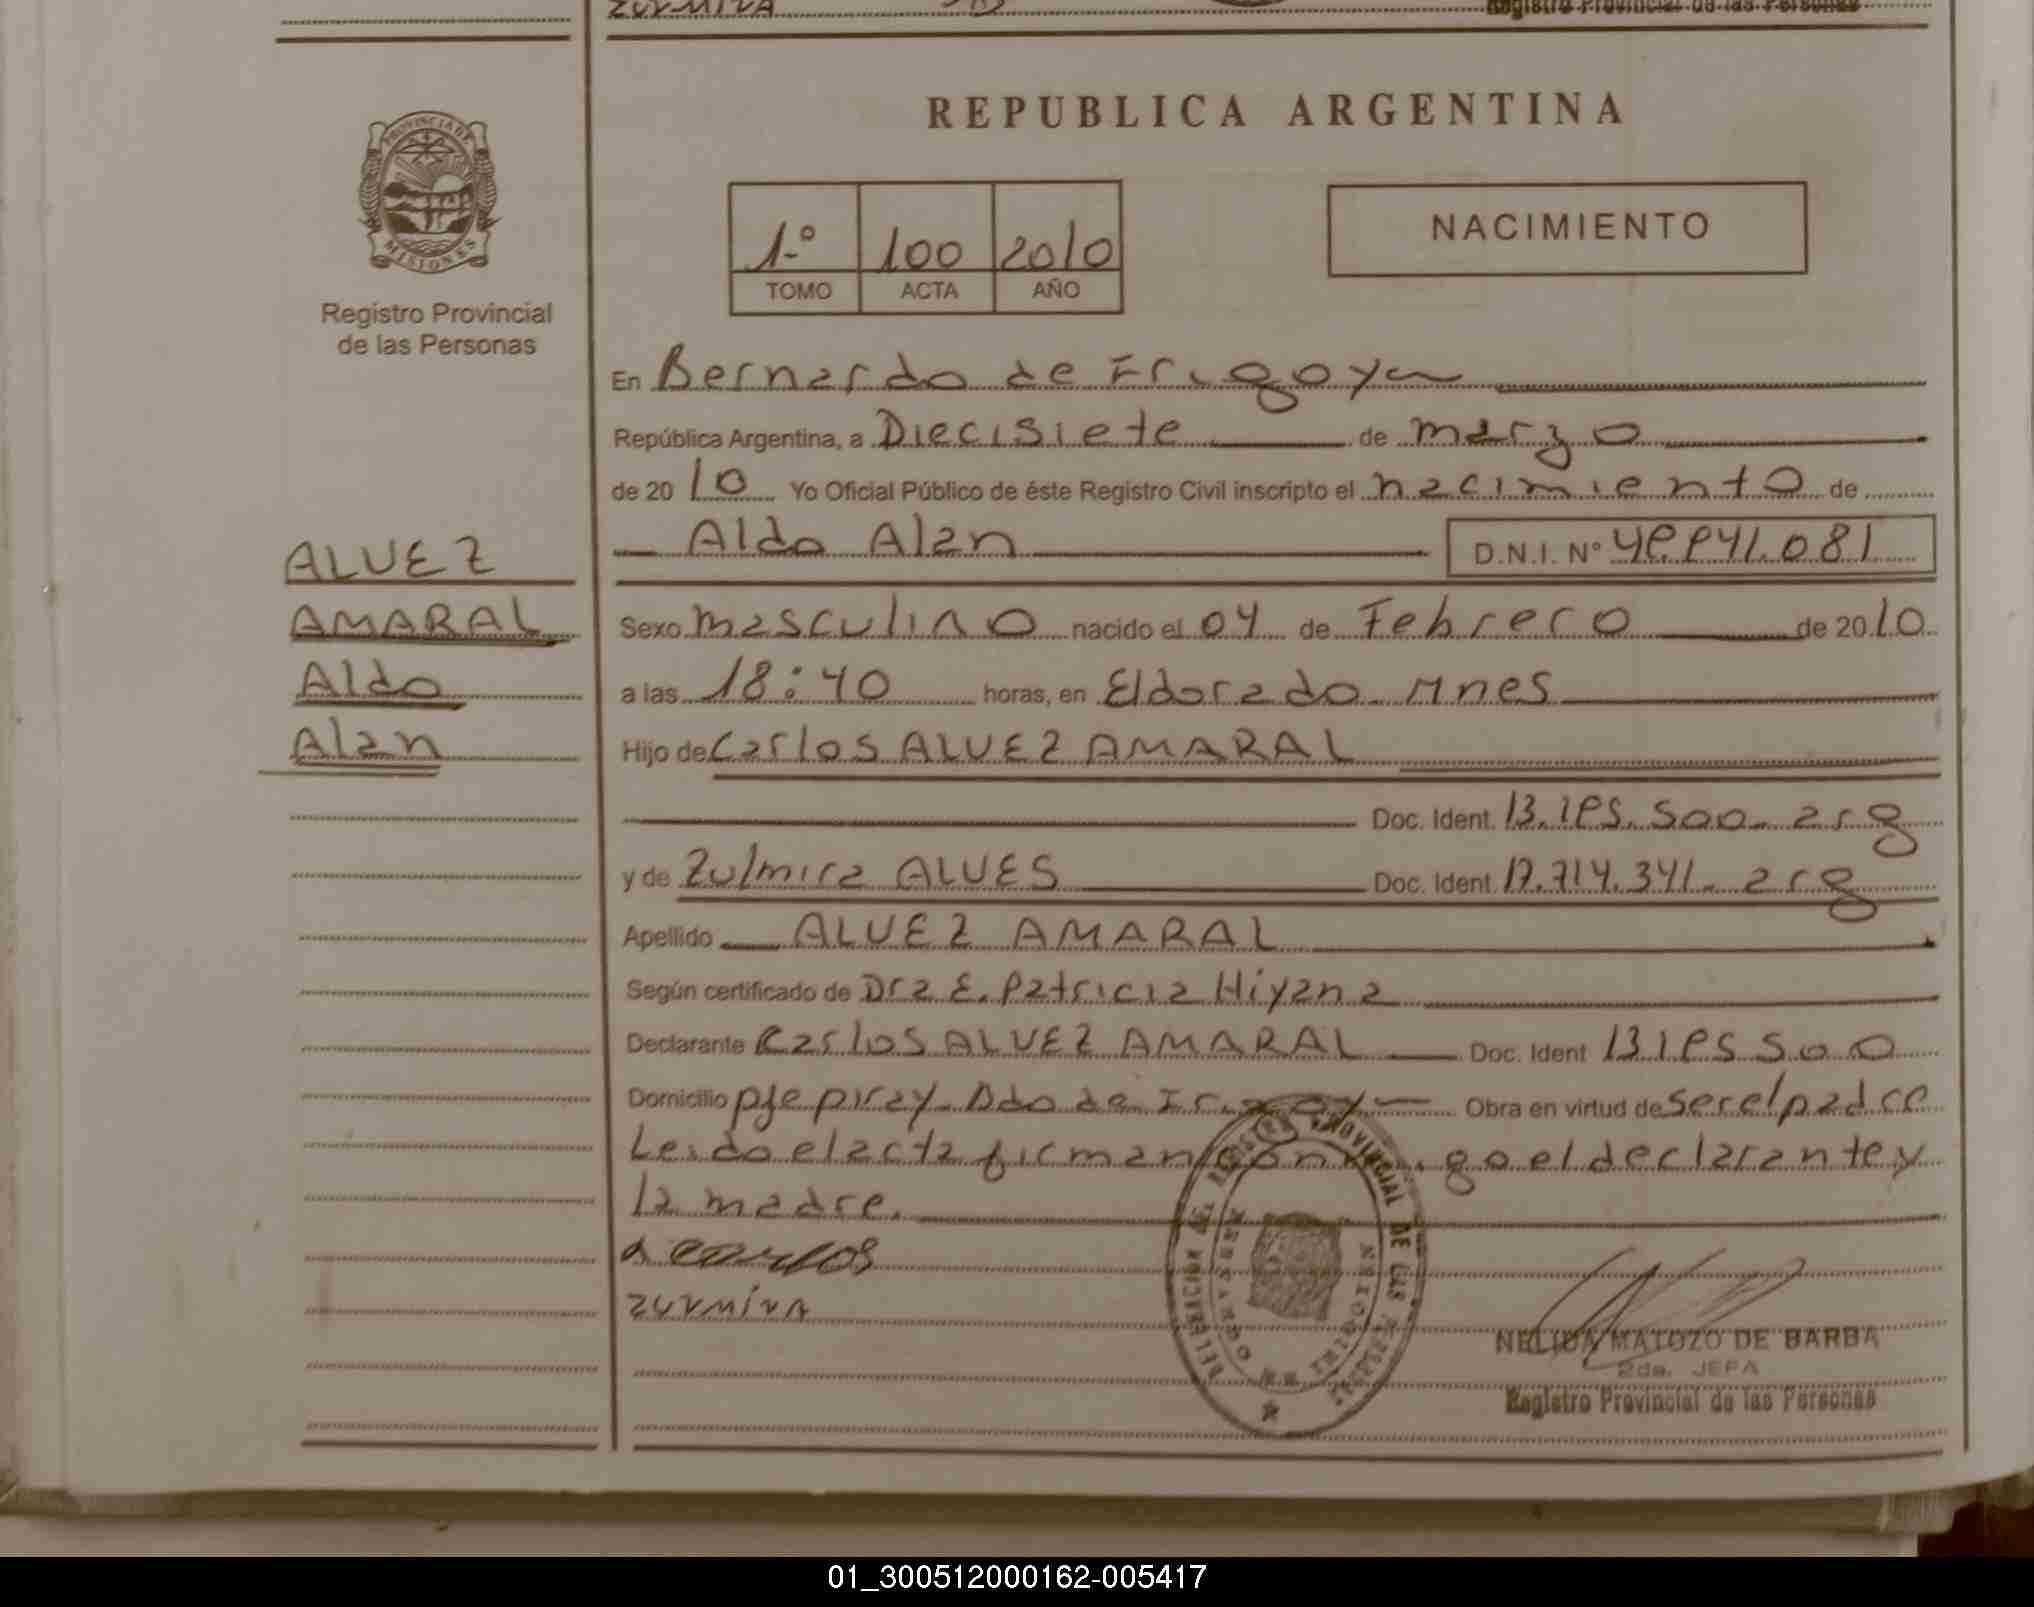 ZULMIRA
Registro Provincial de las Personas
PROVINCIA DE
MISIONES
Registro Provincial
de las Personas
REPUBLICA ARGENTINA
1.º 100 2010
TOMO ACTA AÑO
NACIMIENTO
En Bernardo de Irigoyen
República Argentina, a Diecisiete de marzo
de 2010 Yo Oficial Público de éste Registro Civil inscripto el nacimiento de
Aldo Alan D.N.I. Nº
ALVEZ
AMARAL
Aldo
Alan
Sexo masculino nacido el 04 de Febrero de 2010
a las 18:40 horas, en Eldorado Mnes
Hijo de Carlos ALVEZ AMARAL
Doc. Ident. arg
y de Zulmira ALVES Doc. Ident. 17.714.341. arg
Apellido ALVEZ AMARAL
Según certificado de Dra E. Patricia Hiyana
Declarante Carlos ALVEZ AMARAL Doc. Ident
Domicilio pje piray Bdo de Irigoyen Obra en virtud de ser el padre
Leido el acta firman conmigo el declarante y
la madre.
Carlos
ZULMIRA
DELEGACION DEL REGISTRO PROVINCIAL DE LAS PERSONAS
BERNARDO DE IRIGOYEN
NELIDA MATOZO DE BARBA
2da. JEFA
Registro Provincial de las Personas
01_300512000162-005417